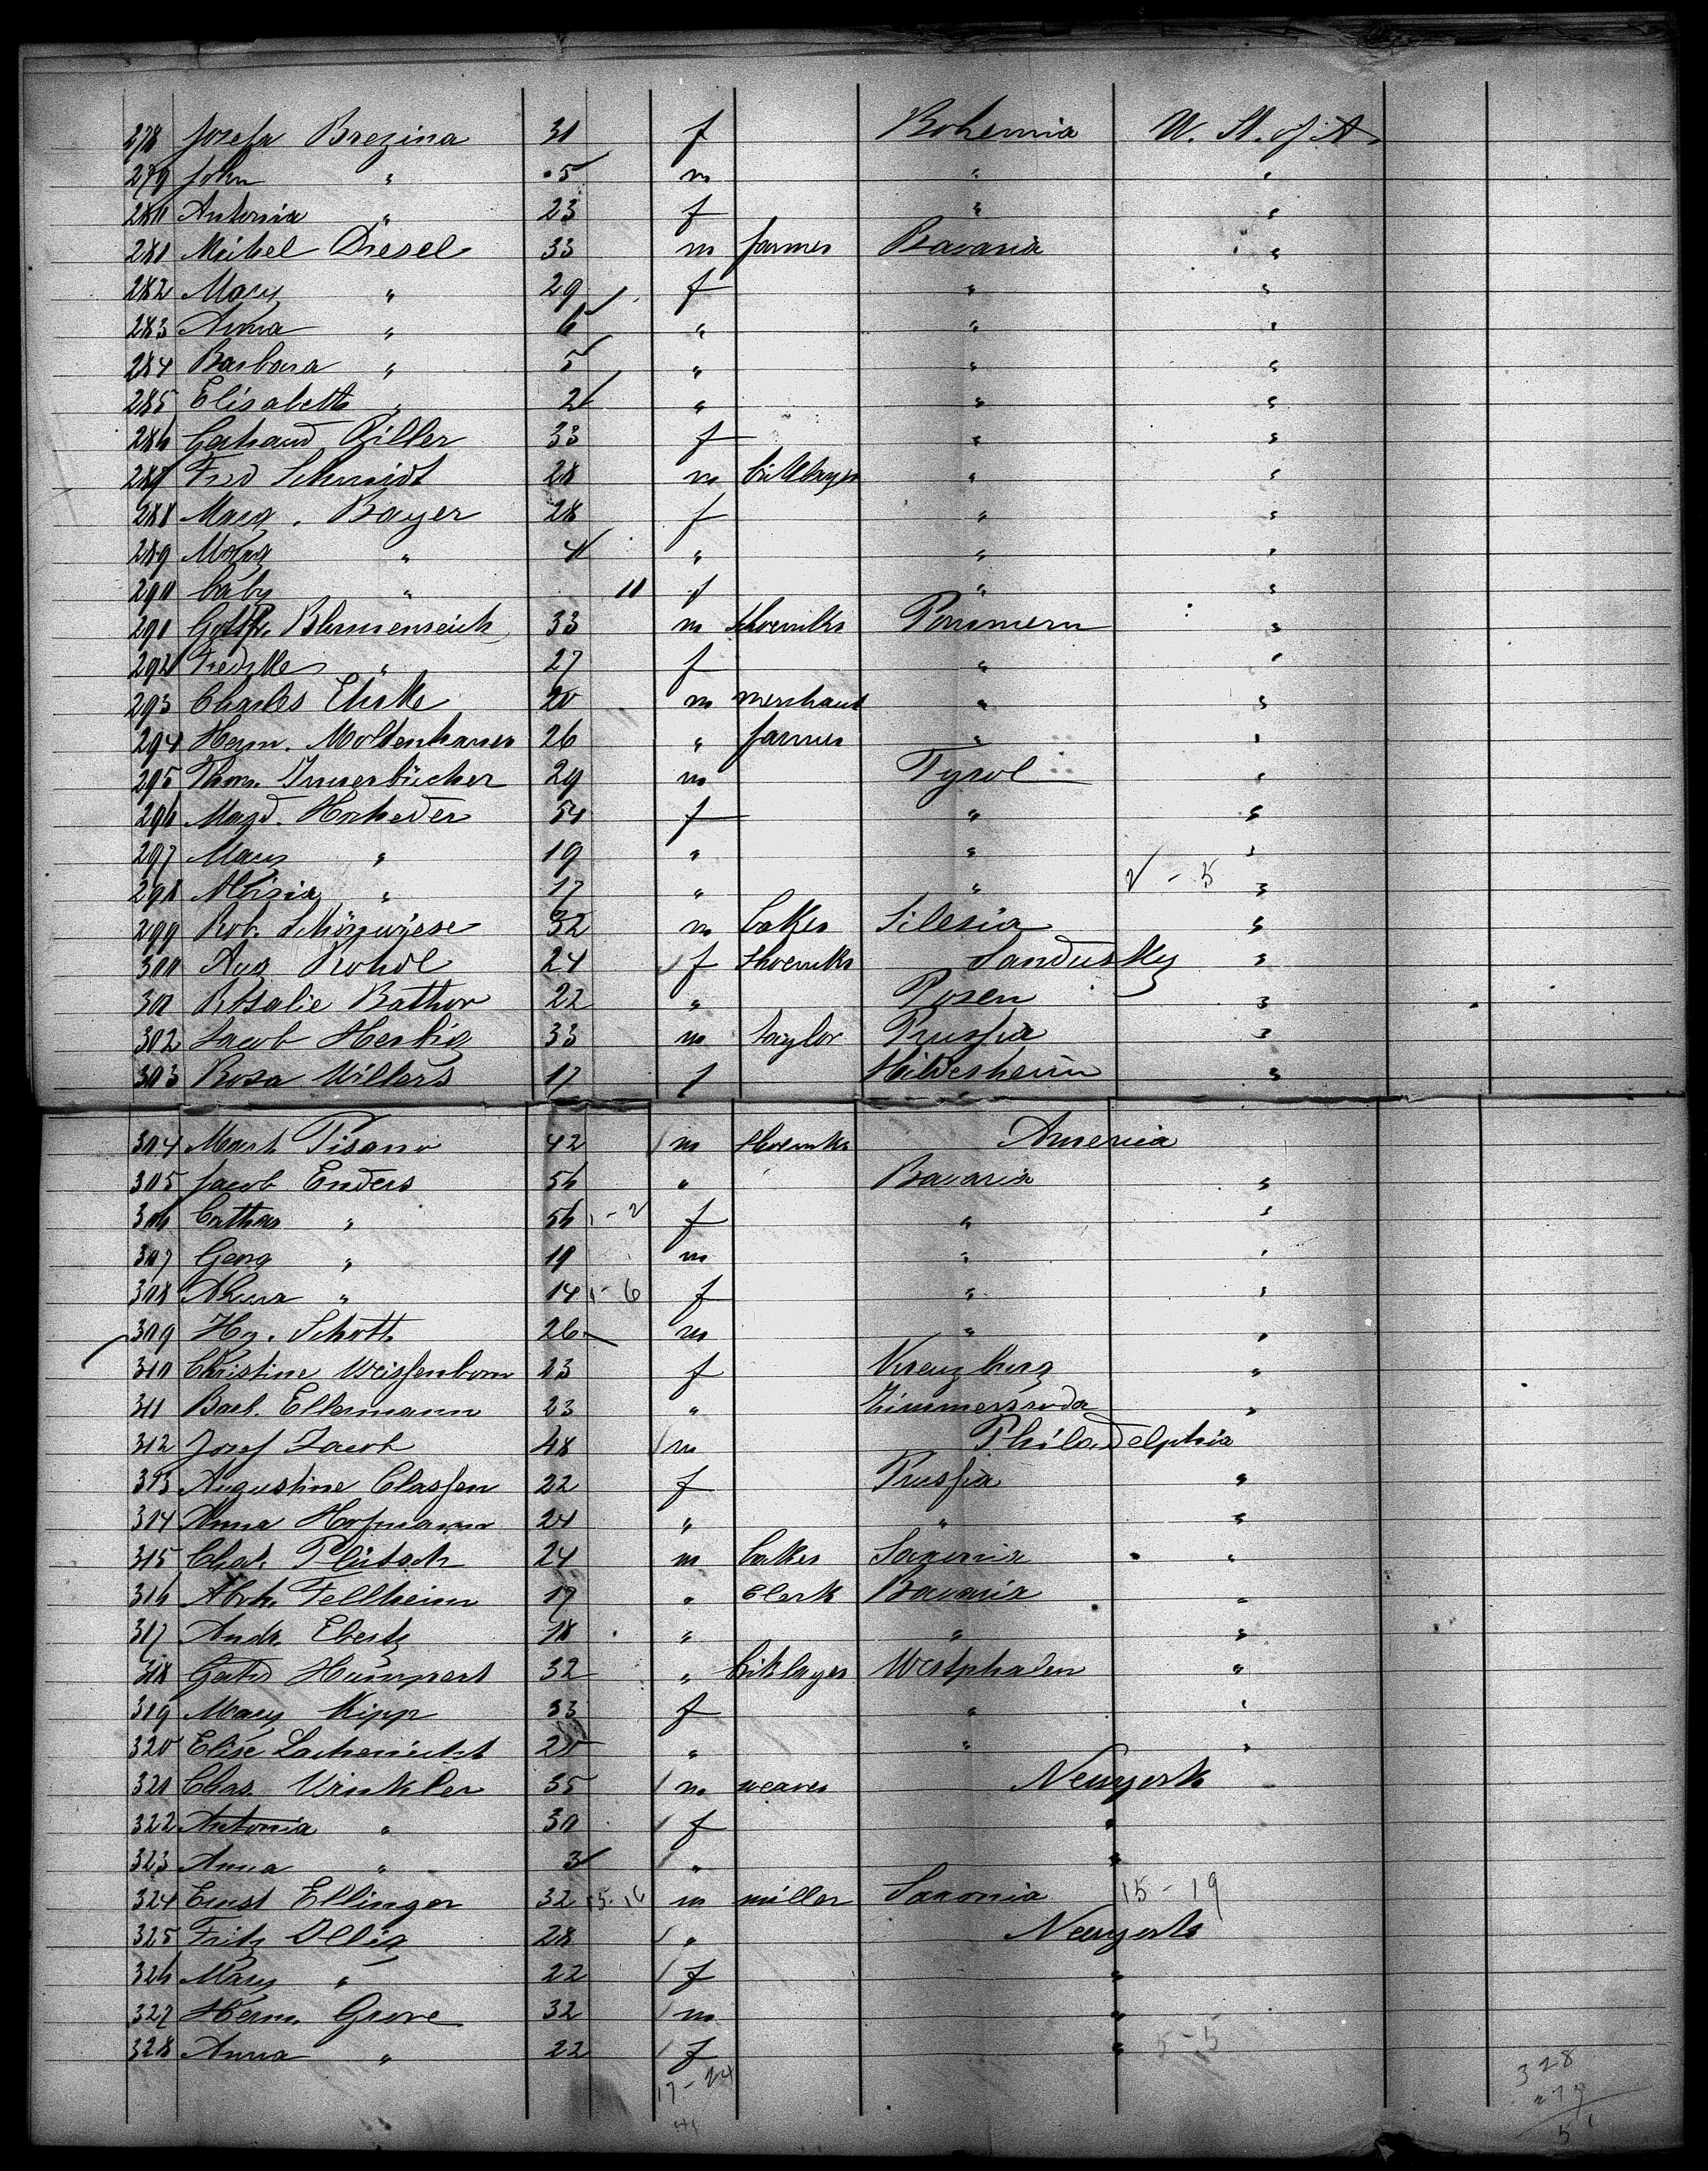 278 Josefa Brezina 31 f Bohemia U. St. of A.
279 John " 5 m " "
280 Antonia " 23 f " "
281 Michel Diesel 33 m farmer Bavaria "
282 Mary " 29 f " "
283 Anna " 6 " " "
284 Barbara " 5 " " "
285 Elisabeth " 2 " " "
286 Gertraud Ziller 33 f " "
287 Fred Schmidt 28 m " "
288 Marg. Bayer 28 f " "
289 Marg " 4 " " "
290 baby " 11 f " "
291 Gottfr. Blumenreich 33 m shoemkr Pommern "
292 Fredrke " 27 f " "
293 Charles 20 m merchant " "
294 Herm. Moldenhauer 26 " farmer " "
295 Thom. Innerbücher 29 m Tyrol "
296 Magd. Hocheder 54 f " "
297 Mary " 19 " " "
298 Aloisia " 17 " " 2 - 5 "
299 Rob. 32 m baker Silesia "
300 Aug Rohdl 24 f shoemkr Sandusky "
301 Rosalie Bathor 22 " Posen "
302 Jacob Herbig 33 m taylor Prussia "
303 Rosa Willers 17 f Hildesheim "
304 Mart Pisano 42 m shoemkr America
305 Jacob Enders 56 " Bavaria "
306 Cathar " 56 1 - 2 f " "
307 Georg " 19 m " "
308 " 14 1 - 6 f " "
309 Hy. Schott 26 m " "
310 Christine Weissenborn 23 f Kreuzburg "
311 Barb. Ellermann 23 " Zimmersroda "
312 Josef Jacob 48 m Philadelphia
313 Augustine Classen 22 f Prussia "
314 Anna Hofmann 24 " " "
315 Chat. Plütsch 24 m baker Saxonia "
316 Abrh. Fellheim 17 " Clerk Bavaria "
317 Andr. Ebertz 18 " " "
318 Gerhd Humpert 32 " briklayer Westphalen "
319 Mary Kipp 33 f " "
320 Elise Lachenicht 20 " " "
321 Chas. Winkler 35 m weaver Newyork
322 Antonia " 30 f "
323 Anna " 3 " "
324 Ernst Ellinger 32 15-16 m miller Saxonia 15 - 19
325 Fritz Ollig 28 " Newyork
326 Mary " 22 f "
327 Herm. Grove 32 m "
328 Anna " 22 f " 5-5
17 - 24
328
277
51